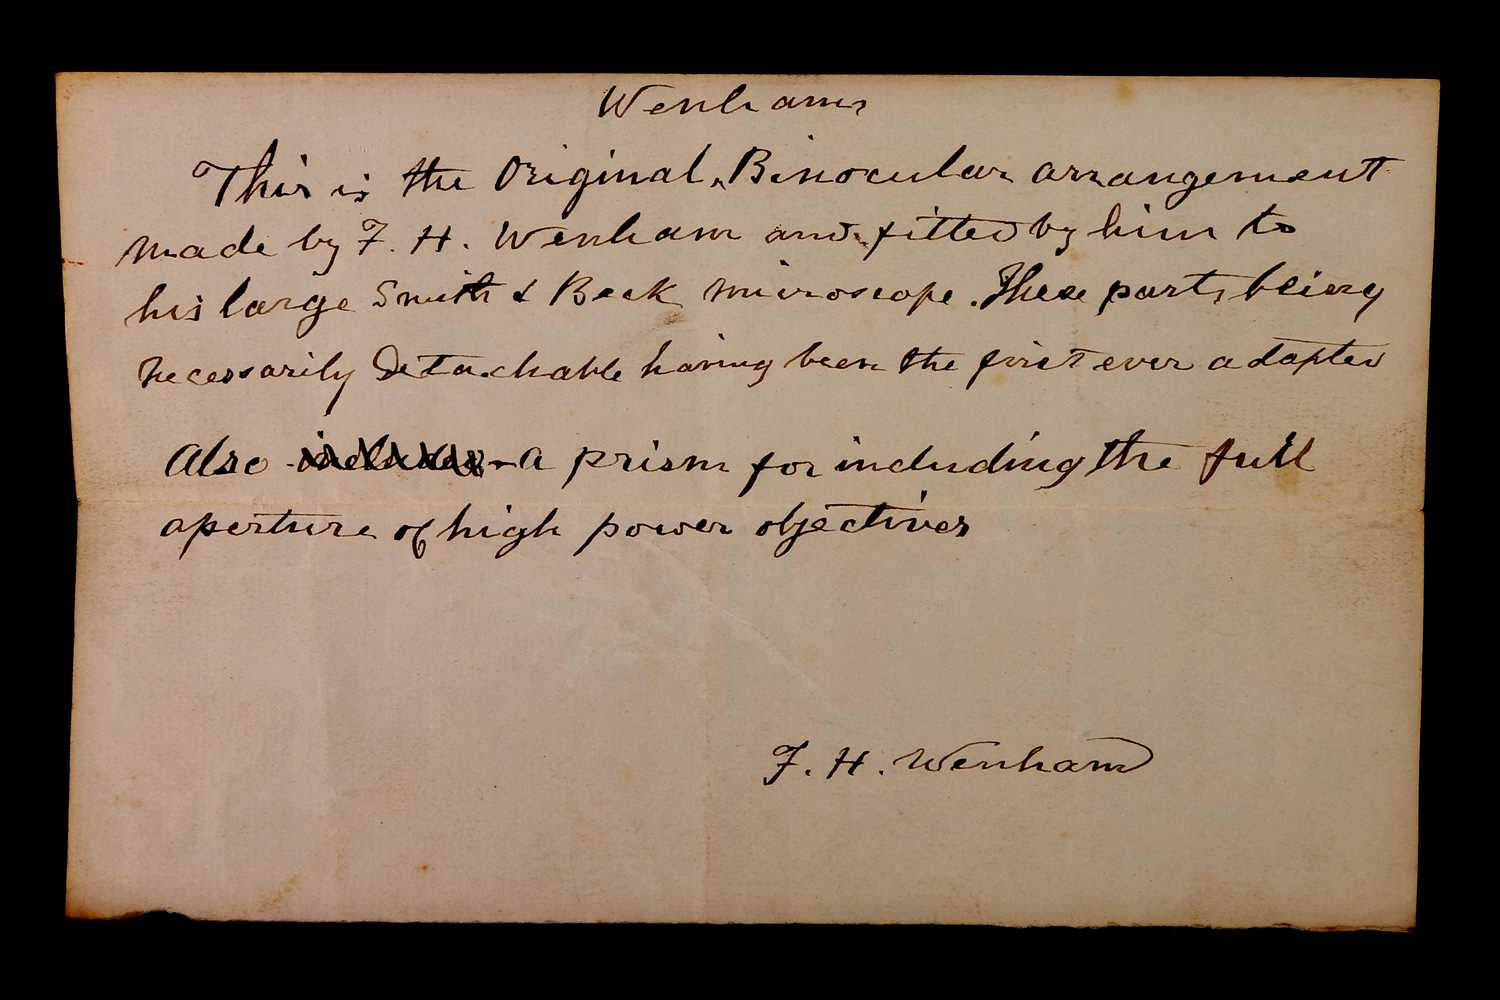 Wenhams
This is the Original Binocular arrangement
made by F. H. Wenham and fitted by him to
his large Smith & Beck microscope. These parts being
necessarily detachable having been the first ever adapted
Also a prism for including the full
aperture of high power objectives
F. H. Wenham